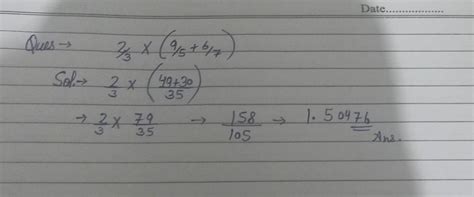 Date..................
Ques → 2/3 × (9/5 + 6/7)
Sol. → 2/3 × (49+30/35)
→ 2/3 × 79/35 → 158/105 → 1.50476
Ans.